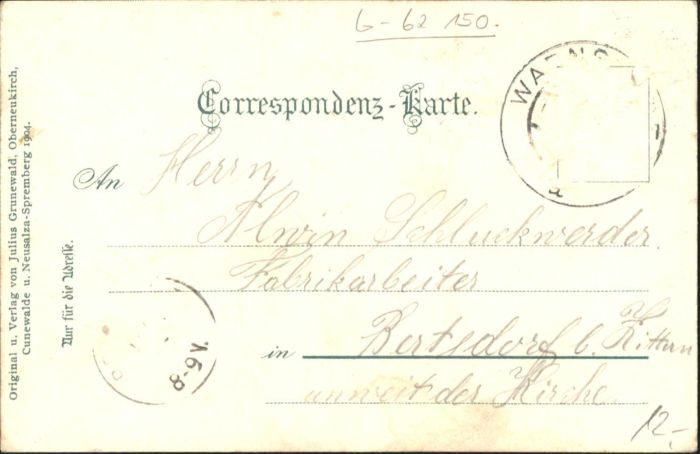 G-62 150.
Correspondenz-Karte.
WARNS
An Herrn
Alwin Schluckwerder.
Fabrikarbeiter
in Bertsdorf b. Zittau
unweit der Kirche.
8-9V.
12,-
Nur für die Adresse.
Original u. Verlag von Julius Grunewald, Oberneukirch,
Cunewalde u. Neusalza-Spremberg 1904.